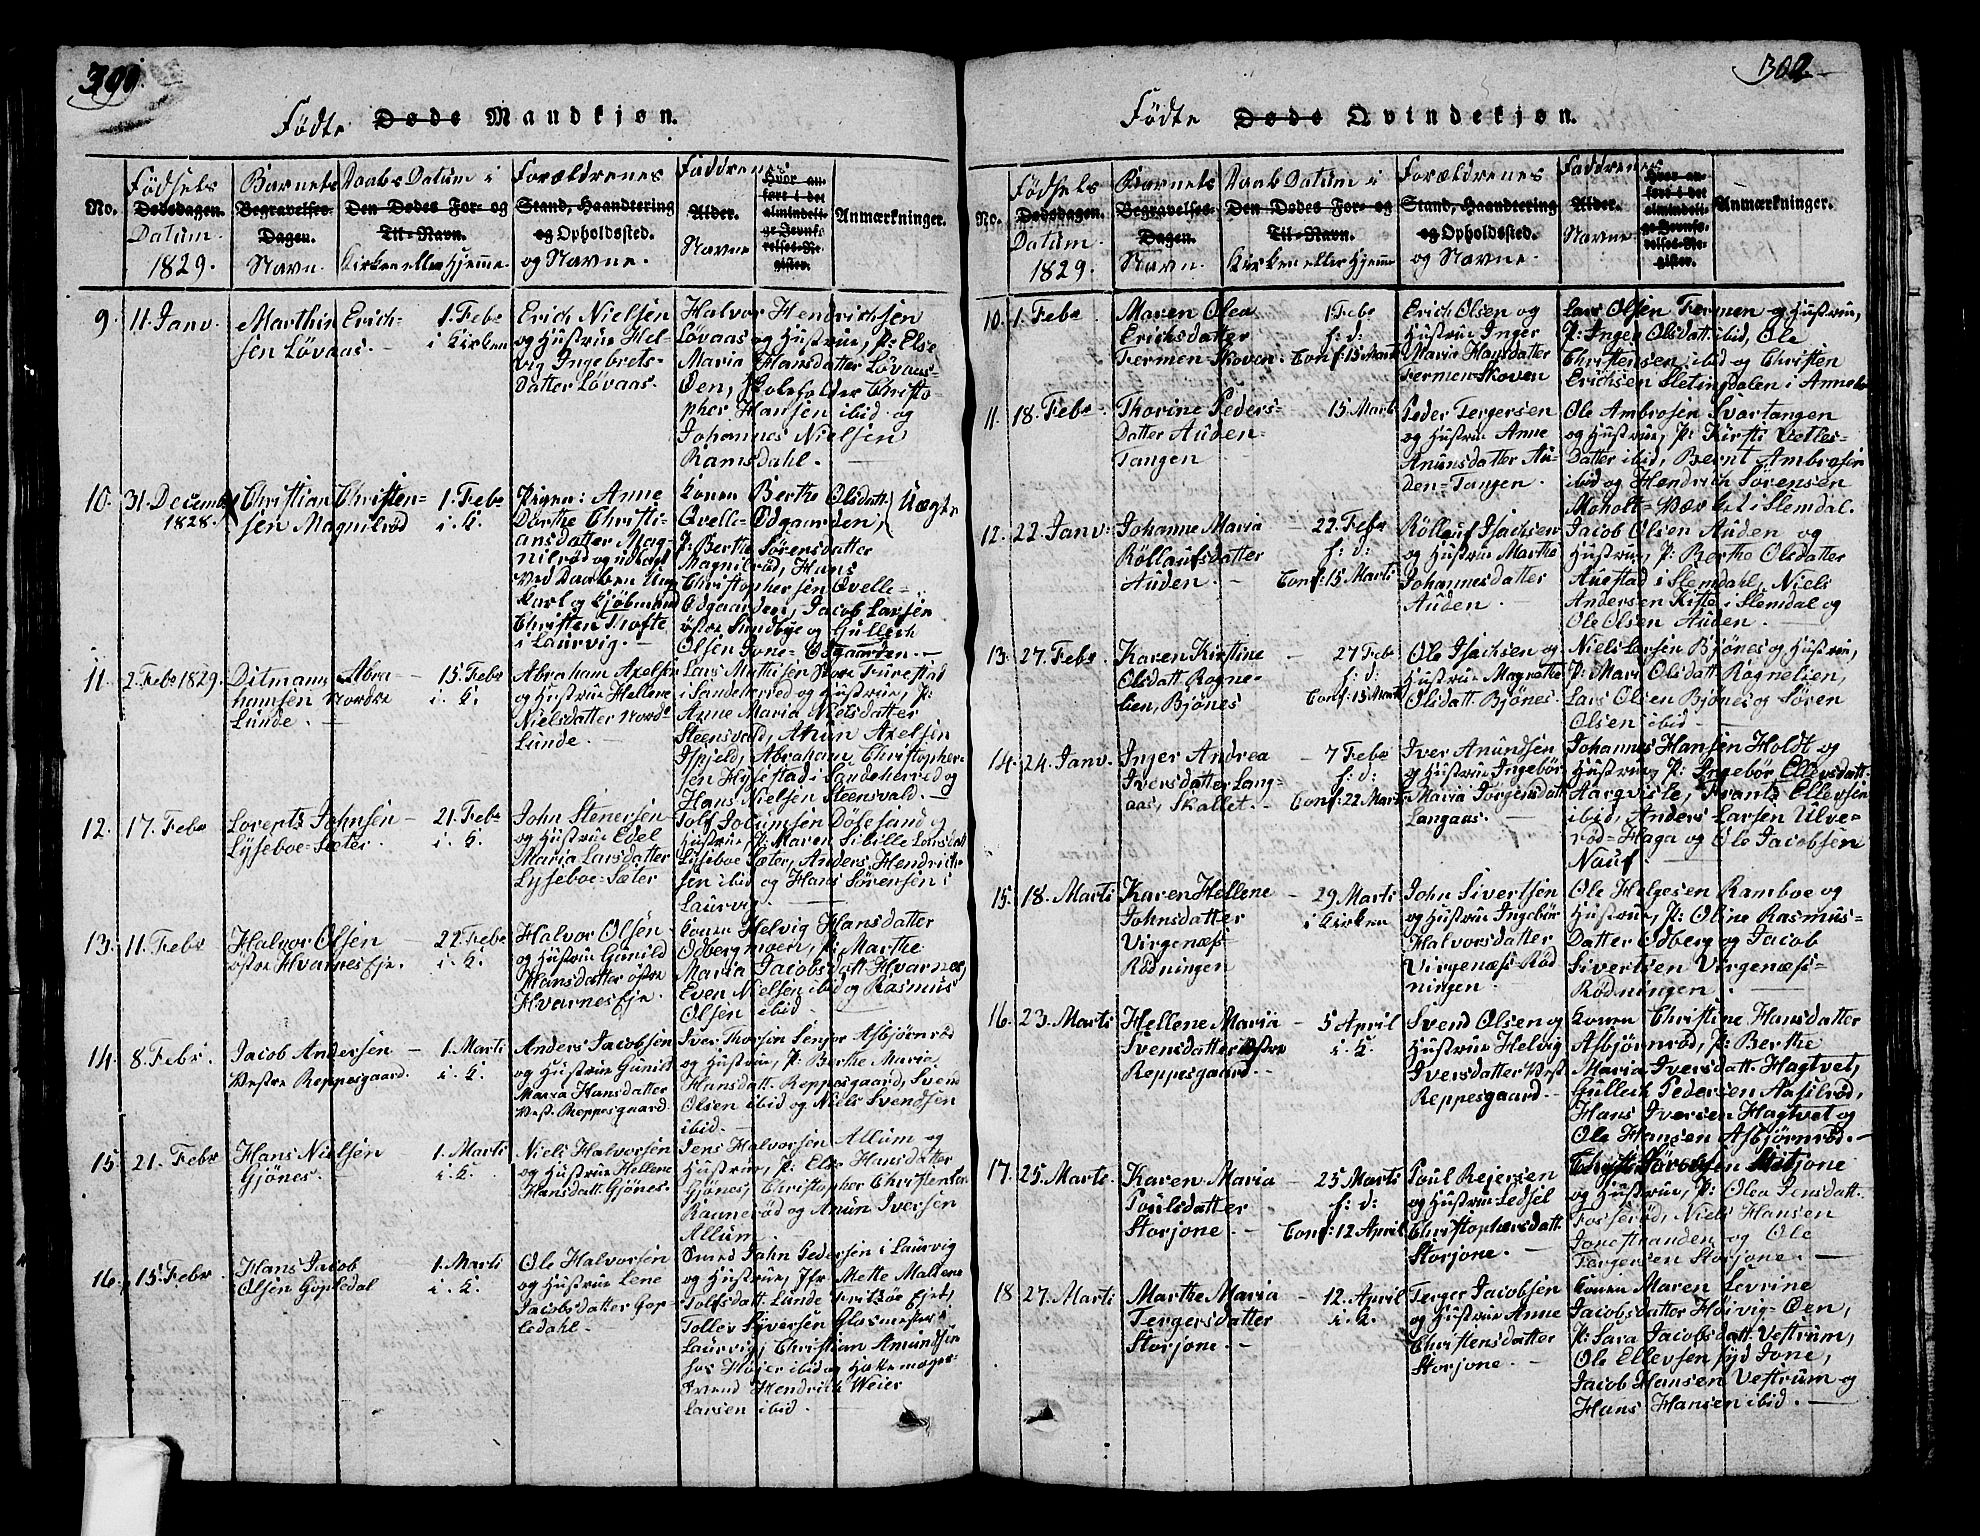 301.
Fødte Døde Mandkjøn.
No.
Fødsels
Dødsdagen.
Datum.
1829.
Barnets
Begravelses-
Dagen.
Navn.
Daabs Datum i
Den Dødes For- og
Til-Navn.
Kirken eller Hjemme
Forældrenes
Stand, Haandtering
og Opholdssted.
og Navne.
Faddrenes
Alder.
Navne
Hvor an-
ført i det
almindeli-
ge Jevnfø-
relses-Re-
gister.
Anmærkninger.
9. 11. Janv.
Marthin Erich-
sen Løvaas.
1. Febr
i Kirken
Erich Nielsen
og Hustrue Hel-
vig Ingebrets-
datter Løvaas.
Halvor Hendrichsen
Løvaas og Hustrue, P: Else
Maria Hansdatter Løvaas-
Øen, Christo-
pher Hansen ibid og
Johannes Nielsen
Ramsdahl.
10. 31. Decembr
1828.
Christian Christen-
sen Magnilrød
1. Febr
i. K.
Pigen: Anne
Dorthe Christi-
ansdatter Mag-
nilrød og udlagt
ved Daaben Ung-
karl og Kjøbmand
Christen Tofte
i Laurvig.
Konen Berthe Olsdatt.
Qvelle-Odgaarden,
P: Berthe Sørensdatter
Magnilrød, Hans
Christophersen Qvelle-
Odgaarden, Jacob Larsen
østre Sundbye og Gullech
Olsen Jone-Odgaarden.
Uægte
11. 2. Febr 1829.
Ditmann Abra-
hamsen Nordre
Lunde.
15. Febr
i. K.
Abraham Axelsen
og Hustrue Hellene
Nielsdatter Nordr
Lunde.
Lars Mathisen Store Furestad
i Sandeherred og Hustrue, P:
Anne Maria Nielsdatter
Steensvald, Anun Axelsen
Isfjeld, Abraham Christopher-
sen Hysestad i Sandeherred og
Hans Nielsen Steensvald.
12. 17. Febr
Lorents Johnsen
Lyseboe-Sæter.
21. Febr
i. K.
John Stenersen
og Hustrue Edel
Maria Larsdatter
Lyseboe-Sæter
Tolf Joaumsen Døsesund og
Hustrue, P: Maren Sibille Larsdatt
Lyseboe Sæter, Anders Hendrich-
sen ibid og Hans Sørensen i
Laurvig.
13. 11. Febr
Halvor Olsen
østre Hvarnes Eje.
22. Febr
i. K.
Halvor Olsen
og Hustrue Gunild
Hansdatter østre
Hvarnes Eje.
Konen Helvig Hansdatter
Odbergmoen, P: Marthe
Maria Jacobsdatt. Hvarnes,
Even Nielsen ibid og Rasmus
Olsen ibid.
14. 8. Febr.
Jacob Andersen
Vestre Reppesgaard.
1. Marti
i. K.
Anders Jacobsen
og Hustrue Gunild
Maria Hansdatter
Vest. Reppesgaard.
Iver Thorsen Senjor Asbjørnrød
og Hustrue, P: Berthe Maria
Hansdatt. Reppesgaard, Svend
Olsen ibid og Niels Svendsen
ibid.
15. 21. Febr
Hans Nielsen
Gjønes.
1. Marti
i. K.
Niels Halvorsen
og Hustrue Hellene
Hansdatt. Gjønes.
Jens Halvorsen Allum og
Hustrue, P: Else Hansdatter
Gjønes, Christopher Christensen
Raunerød og Anun Iversen
Allum.
16. 15. Febr
Hans Jacob
Olsen Gopledal
1. Marti
i. K.
Ole Halvorsen
og Hustrue Lene
Jacobsdatter Gop-
ledahl.
Smed John Pedersen i Laurvig
og Hustrue, Jfr. Mette Maltene
Tolfsdatt. Lunde Fritzøe Eje,
Tollev Syversen Glasmester i
Laurvig, Christian Amundsen
hos Høier ibid og Hattemager-
Svend Hendrich Weier
Larsen ibid.
302
Fødte Døde Qvindekjøn.
No.
Fødsels
Dødsdagen.
Datum.
1829.
Barnets
Begravelses-
Dagen.
Navn.
Daab Datum i
Den Dødes For- og
Til-Navn.
Kirken eller Hjemme
Forældrenes
Stand, Haandtering
og Opholdssted.
og Navne.
Faddrenes
Alder.
Navne
Hvor an-
ført i det
almindeli-
ge Jevnfø-
relses-Re-
gister.
Anmærkninger.
10. 1. Febr
Maren Olea
Erichsdatter
Fermen Skoven.
1 Febr
h: d:
Conf: 15 Marti
Erich Olsen og
Hustrue Inger
Maria Hansdatter
Fermen-Skoven
Lars Olsen Fermen og Hustrue,
P: Inger Olsdatt. ibid, Ole
Christensen ibid og Christen
Erichsen Sletingdalen i Anneb
11. 18. Febr.
Thorine Peders-
datter Auden-
Tangen
15 Marti
Peder Tergersen
og Hustrue Anne
Anunsdatter Au-
den-Tangen.
Ole Ambrosen Svartangen
og Hustrue, P: Kirsti Vetles-
datter ibid, Bernt Ambrosen
ibid og Hendrich Sørensen
Moholt-Værket i Slemdal.
12. 22. Janv:
Johanne Maria
Røllaufsdatter
Auden.
22. Febr
h: d:
Conf: 15 Marti
Røllauf Isachsen
og Hustrue Marthe
Johannesdatter
Auden.
Jacob Olsen Auden og
Hustrue, P: Berthe Olsdatter
Auestad i Slemdahl, Niels
Andersen Kiste i Slemdal og
Ole Olsen Auden.
13. 27. Febr.
Karen Kirstine
Olsdatt. Rogne-
lien, Bjønes
27 Febr
h: d:
Conf: 15 Marti
Ole Isachsen og
Hustrue Magrethe
Olsdatt. Bjønes.
Niels Larsen Bjønes og Hustrue,
P: Mari Olsdatt. Rognelien,
Lars Olsen Bjønes og Søren
Olsen ibid.
14. 24. Janv.
Inger Andrea
Iversdatter Lang-
aas, Skallet.
7 Febr
h: d:
Conf: 22 Marti
Iver Anundsen
og Hustrue Ingebør
Maria Jørgensdatt.
Langaas.
Johannes Hansen Holdt og
Hustrue, P: Ingebør Ellevsdatt.
Aarqviste, Frants Ellevsen
ibid, Anders Larsen Ulve-
rød-Haga og Ole Jacobsen
Nauf.
15. 18. Marti
Karen Hellene
Johnsdatter
Virgenæs-
Rødningen
29 Marti
i Kirken
John Sivertsen
og Hustrue Ingebør
Halvorsdatter
Virgenæs-Rød
ningen.
Ole Helgesen Ramboe og
Hustrue, P: Oline Rasmus-
datter Odberg og Jacob
Sivertsen Virgenæs-
Rødningen.
16. 23. Marti
Hellene Maria
Svensdatter Østre
Reppesgaard.
5 April
i. K.
Svend Olsen og
Hustrue Helvig
Iversdatter Vest
Reppesgaard.
Konen Christine Hansdatter
Asbjørnrød, P: Berthe
Maria Iversdatt. Hagtvet,
Gullich Pedersen Aasilrød,
Hans Iversen Hagtvet og
Ole Hansen Asbjørnrød.
17. 25. Marti.
Karen Maria
Poulsdatter
Storjone.
25 Marti
h: d:
Conf: 12 April
Poul Rejersen
og Hustrue Ledsel
Christophersdatt.
Storjone.
Mitjone
og Hustrue, P: Olea Jensdatt.
Fosserød, Niels Hansen
Jonestranden og Ole
Tergersen Storjone.
18. 27. Marti
Marthe Maria
Tergersdatter
Storjone.
12. April
i. K.
Terger Jacobsen
og Hustrue Anne
Christensdatter
Storjone.
Konen Maren Levrine
Jacobsdatter Høivig-Øen,
P: Sara Jacobsdatt. Vestrum,
Ole Ellevsen syd Jone,
Jacob Hansen Vestrum og
Hans Hansen ibid.